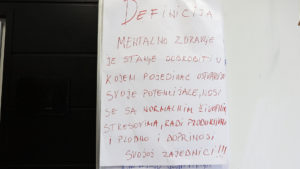 DEFINICIJA
MENTALNO ZDRAVLJE
JE STANJE DOBROBITI U
KOJEM POJEDINAC OSTVARUJE
SVOJE POTENCIJALE, NOSI
SE SA NORMALNIM ŽIVOTNIM
STRESOVIMA, RADI PRODUKTIVNO
I PLODNO I DOPRINOSI
SVOJOJ ZAJEDNICI!!!